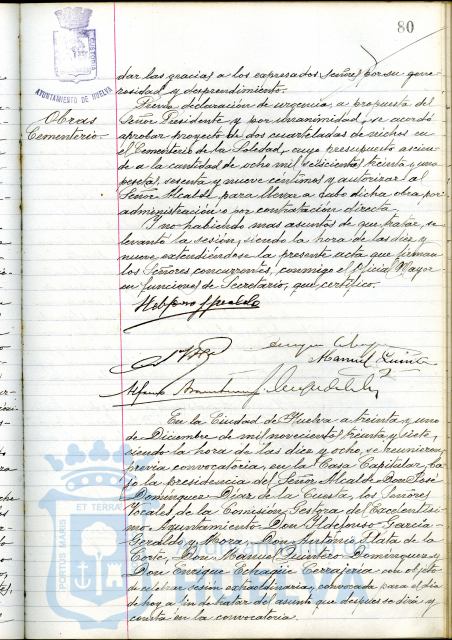 80
CUSTODIA
AYUNTAMIENTO DE HUELVA
Obras
Cementerio.
dar las gracias a los expresados Señores por su gene-
rosidad y desprendimiento.
Previa declaración de urgencia, a propuesta del
Señor Presidente y por unanimidad, se acordó
aprobar proyecto de dos cuarteladas de nichos en
el Cementerio de la Soledad, cuyo presupuesto ascien-
de a la cantidad de ocho mil seiscientas treinta y una
pesetas, sesenta y nueve céntimos y autorizar al
Señor Alcalde para llevar a cabo dicha obra por
administración o por contratación directa.
Y no habiendo mas asuntos de que tratar, se
levantó la sesión, siendo la hora de las diez y
nueve extendiéndose la presente acta que firman
los Señores concurrentes, conmigo el Oficial Mayor
en funciones de Secretario, que certifico.
Manuel Quintero
En la Ciudad de Huelva a treinta y uno
de Diciembre de mil novecientos treinta y siete,
siendo la hora de las diez y ocho, se reunieron,
previa convocatoria, en la Casa Capitular, ba-
jo la presidencia del Señor Alcalde Don José
Dominguez Diaz de la Cuesta, los Señores
Vocales de la Comisión Gestora del Excelentísi-
mo Ayuntamiento Don Ildefonso Garcia-
Geraldo y Mora, Don Antonio Plata de la
Corte, Don Manuel Quintero Dominguez y
Don Enrique Echagüe Cerrajeria con objeto
de celebrar sesión extraordinaria, convocada para el dia
de hoy a fin de tratar del asunto que despues se dirá y
consta en la convocatoria.
ET TERRA
PORTUS MARIS